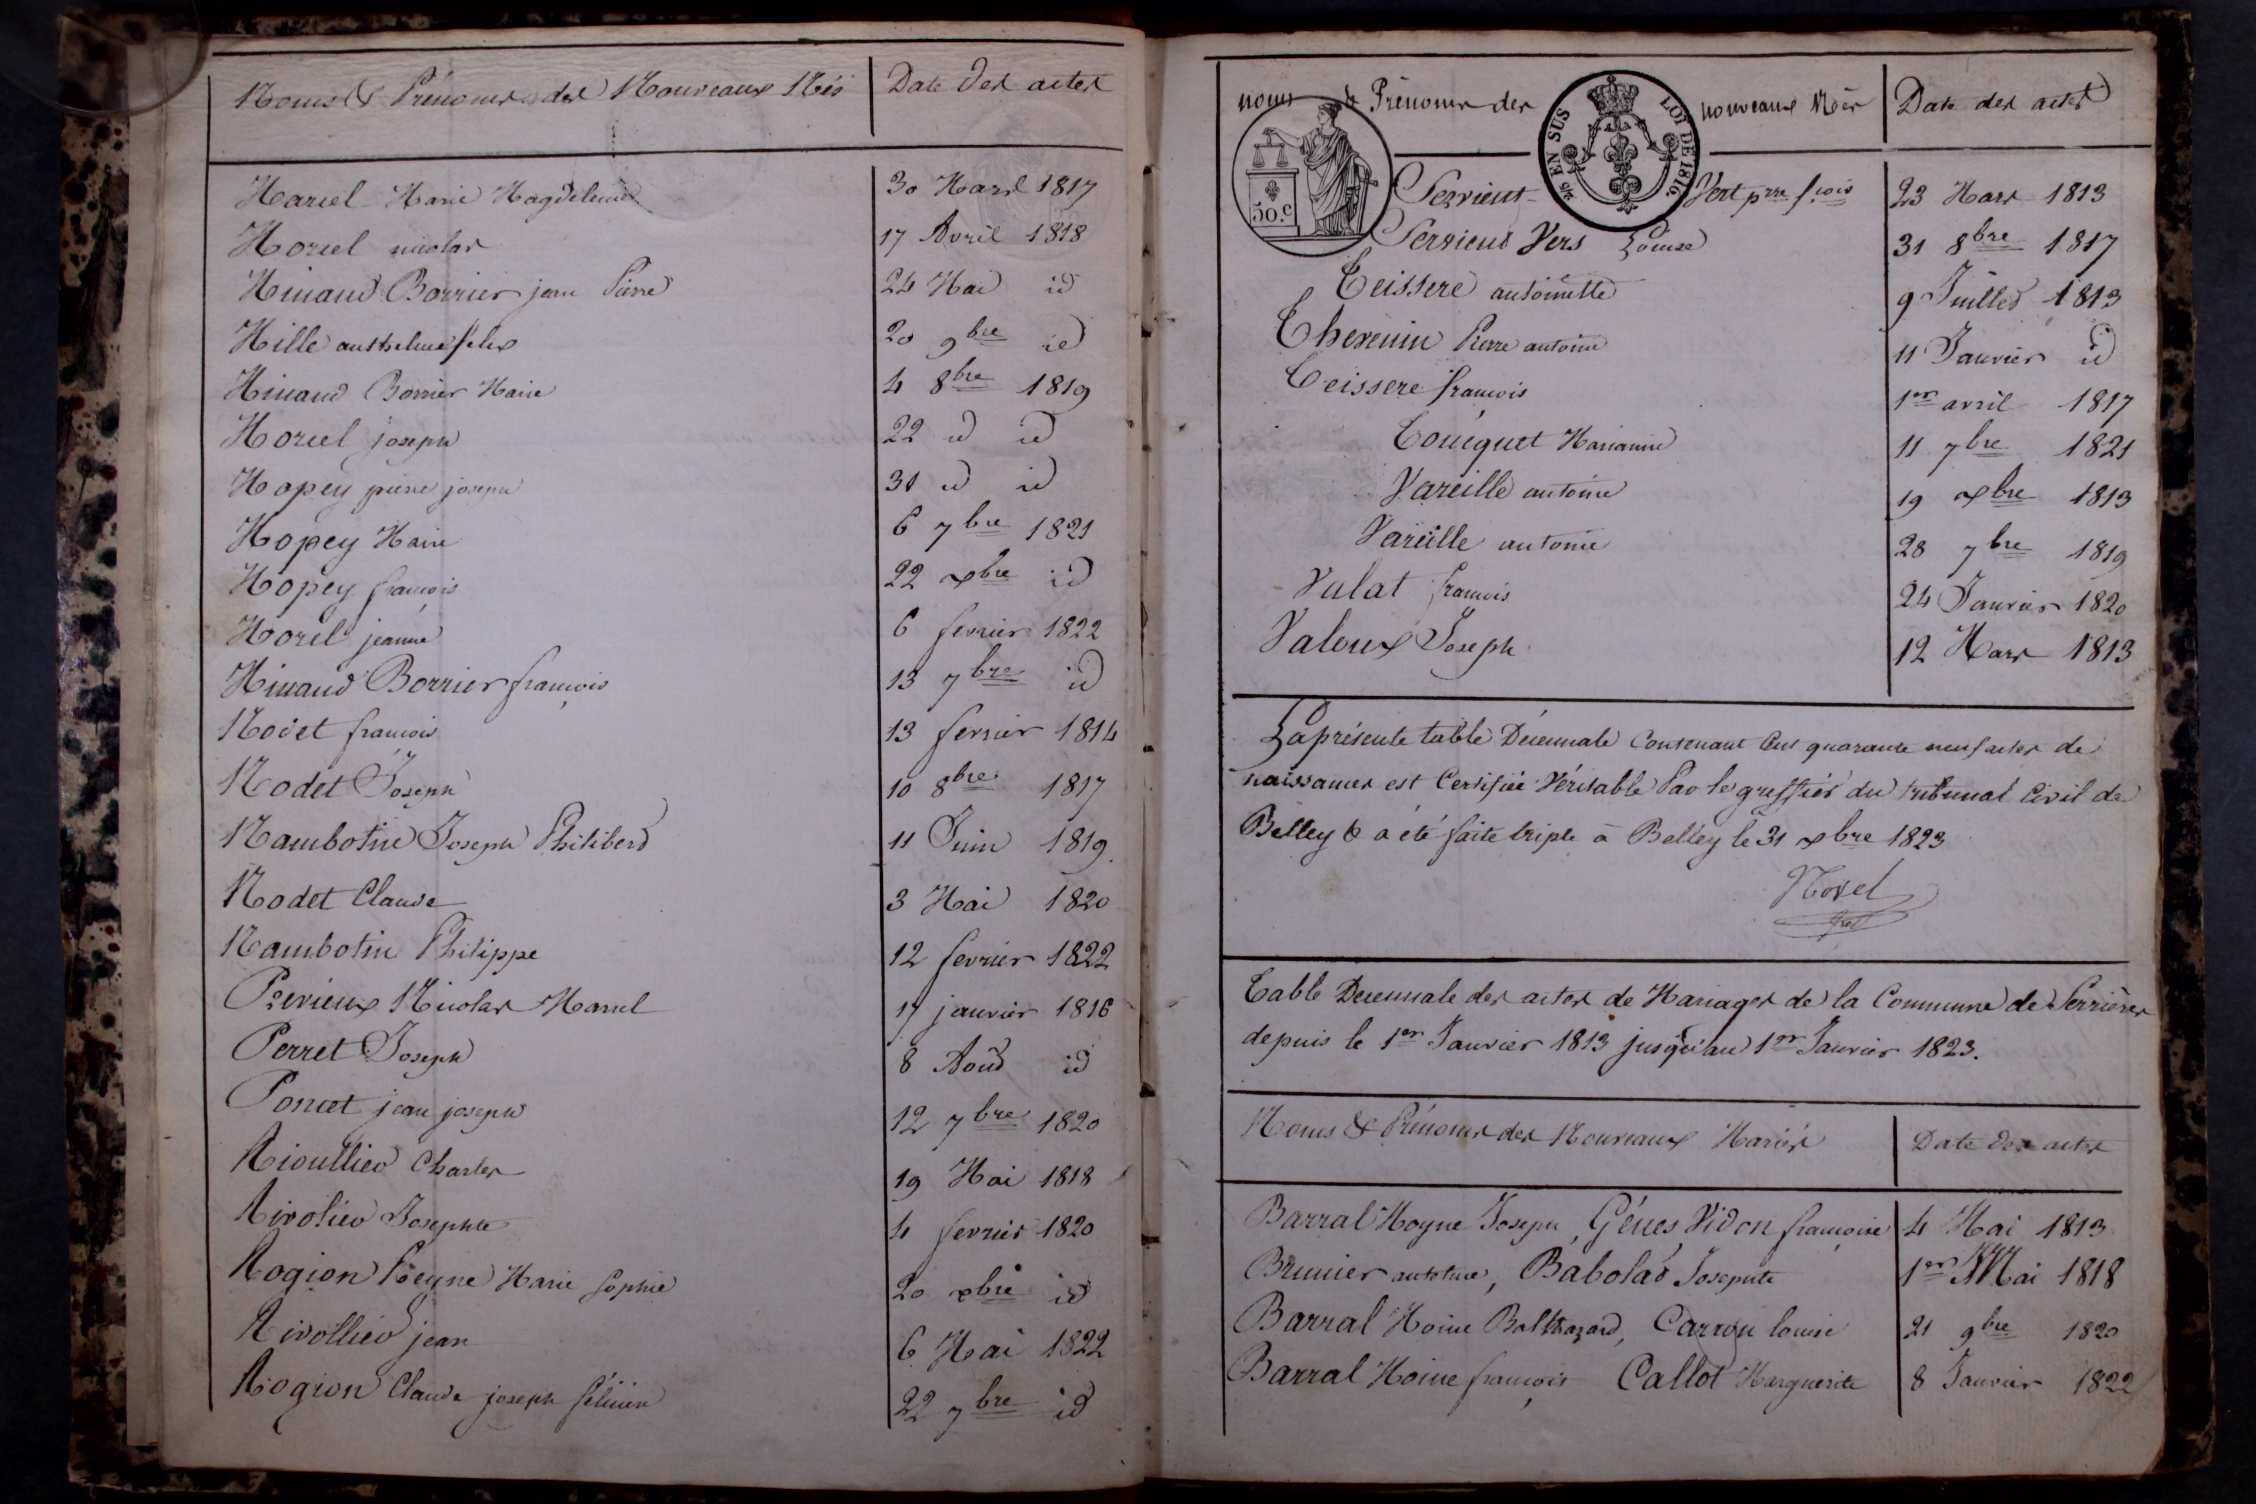 Noms & Prénoms des Nouveaux Nés Date des actes
Marcel Marie Magdeleine 30 Mars 1817
Morel nicolas 17 Avril 1818
Minand Borrier jean Pierre 24 Mai id
Mille anthelme felix 20 9bre id
Minand Borrier Marie 4 8bre 1819
Morel joseph 22 id id
Mopey pierre joseph 31 id id
Mopey Marie 6 7bre 1821
Mopey francois 22 xbre id
Morel jeanne 6 fevrier 1822
Minand Borrier françois 13 7bre id
Nodet francois 13 fevrier 1814
Nodet Joseph 10 8bre 1817
Nambotin Joseph Philiberd 11 Juin 1819
Nodet Claude 3 Mai 1820
Nambotin Philippe 12 fevrier 1822
Prévieux Nicolas Marcel 17 janvier 1816
Perret Joseph 8 Aoud id
Poncet jean joseph 12 7bre 1820
Rioullied Charles 19 Mai 1818
Rivolied Josephte 4 fevrier 1820
Rogion Poeyne Marie Sophie 20 xbre id
Rivollied jean 6 Mai 1822
Rogion Claude joseph félicien 22 7bre id
noms & Prénoms des nouveaux Nés Date des actes
2/10 EN SUS LOI DE 1816
50.c
Servient Vert prre fcois 23 Mars 1813
Serviend Vers Louise 31 8bre 1817
Teissere antoinette 9 Juilled 1813
Thevenin Pierre antoine 11 Janvier id
Teissere francois 1er avril 1817
Touquet Marianne 11 7bre 1821
Vareille antoine 19 xbre 1813
Vareille antoine 28 7bre 1819
Vulat francois 24 Janvier 1820
Valoux Joseph 12 Mars 1813
La présente table Décennale Contenant Cent quarante neuf actes de
naissances est Certifiée Véritable Par le greffier du tribunal Civil de
Belley & a été faite triple à Belley le 31 xbre 1823
Morel
Table Décennale des actes de Mariages de la Commune de Serrières
depuis le 1er Janvier 1813 jusqu'au 1er Janvier 1823.
Noms & Prénoms des Nouveaux Mariés Date des actes
Barral Moyne Joseph, Génes Vidon françoise 4 Mai 1813
Brunier antoine, Babolad Josephte 1er Mai 1818
Barral Moine Balthazard, Carron louise 21 9bre 1820
Barral Moine françois Callot Marguerite 8 Janvier 1822